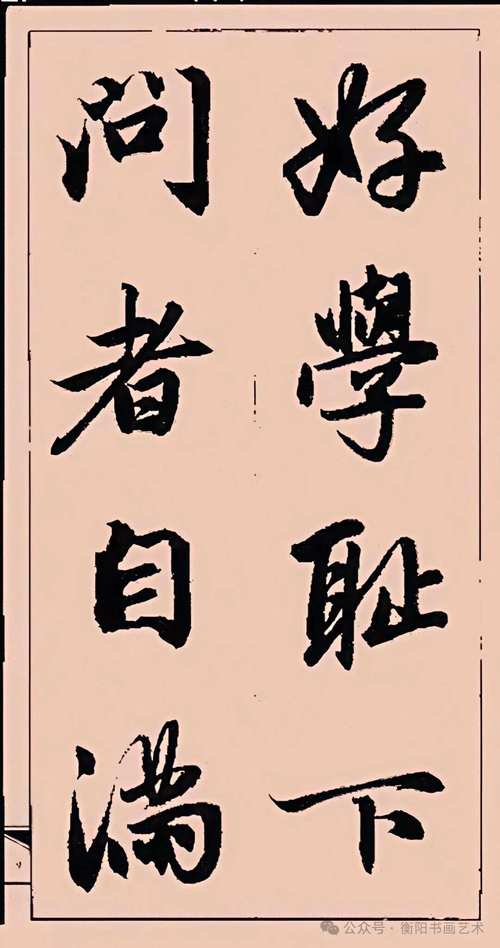 好學耻下
問者自滿
公众号·衡阳书画艺术